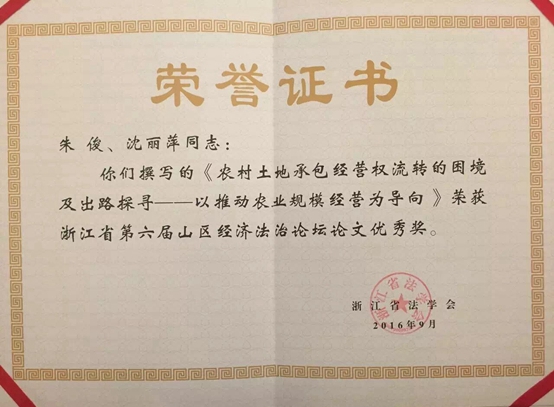 荣誉证书
朱 俊、沈丽萍同志：
你们撰写的《农村土地承包经营权流转的困境
及出路探寻——以推动农业规模经营为导向》荣获
浙江省第六届山区经济法治论坛论文优秀奖。
浙江省法学会
浙江省法学会
2016年9月